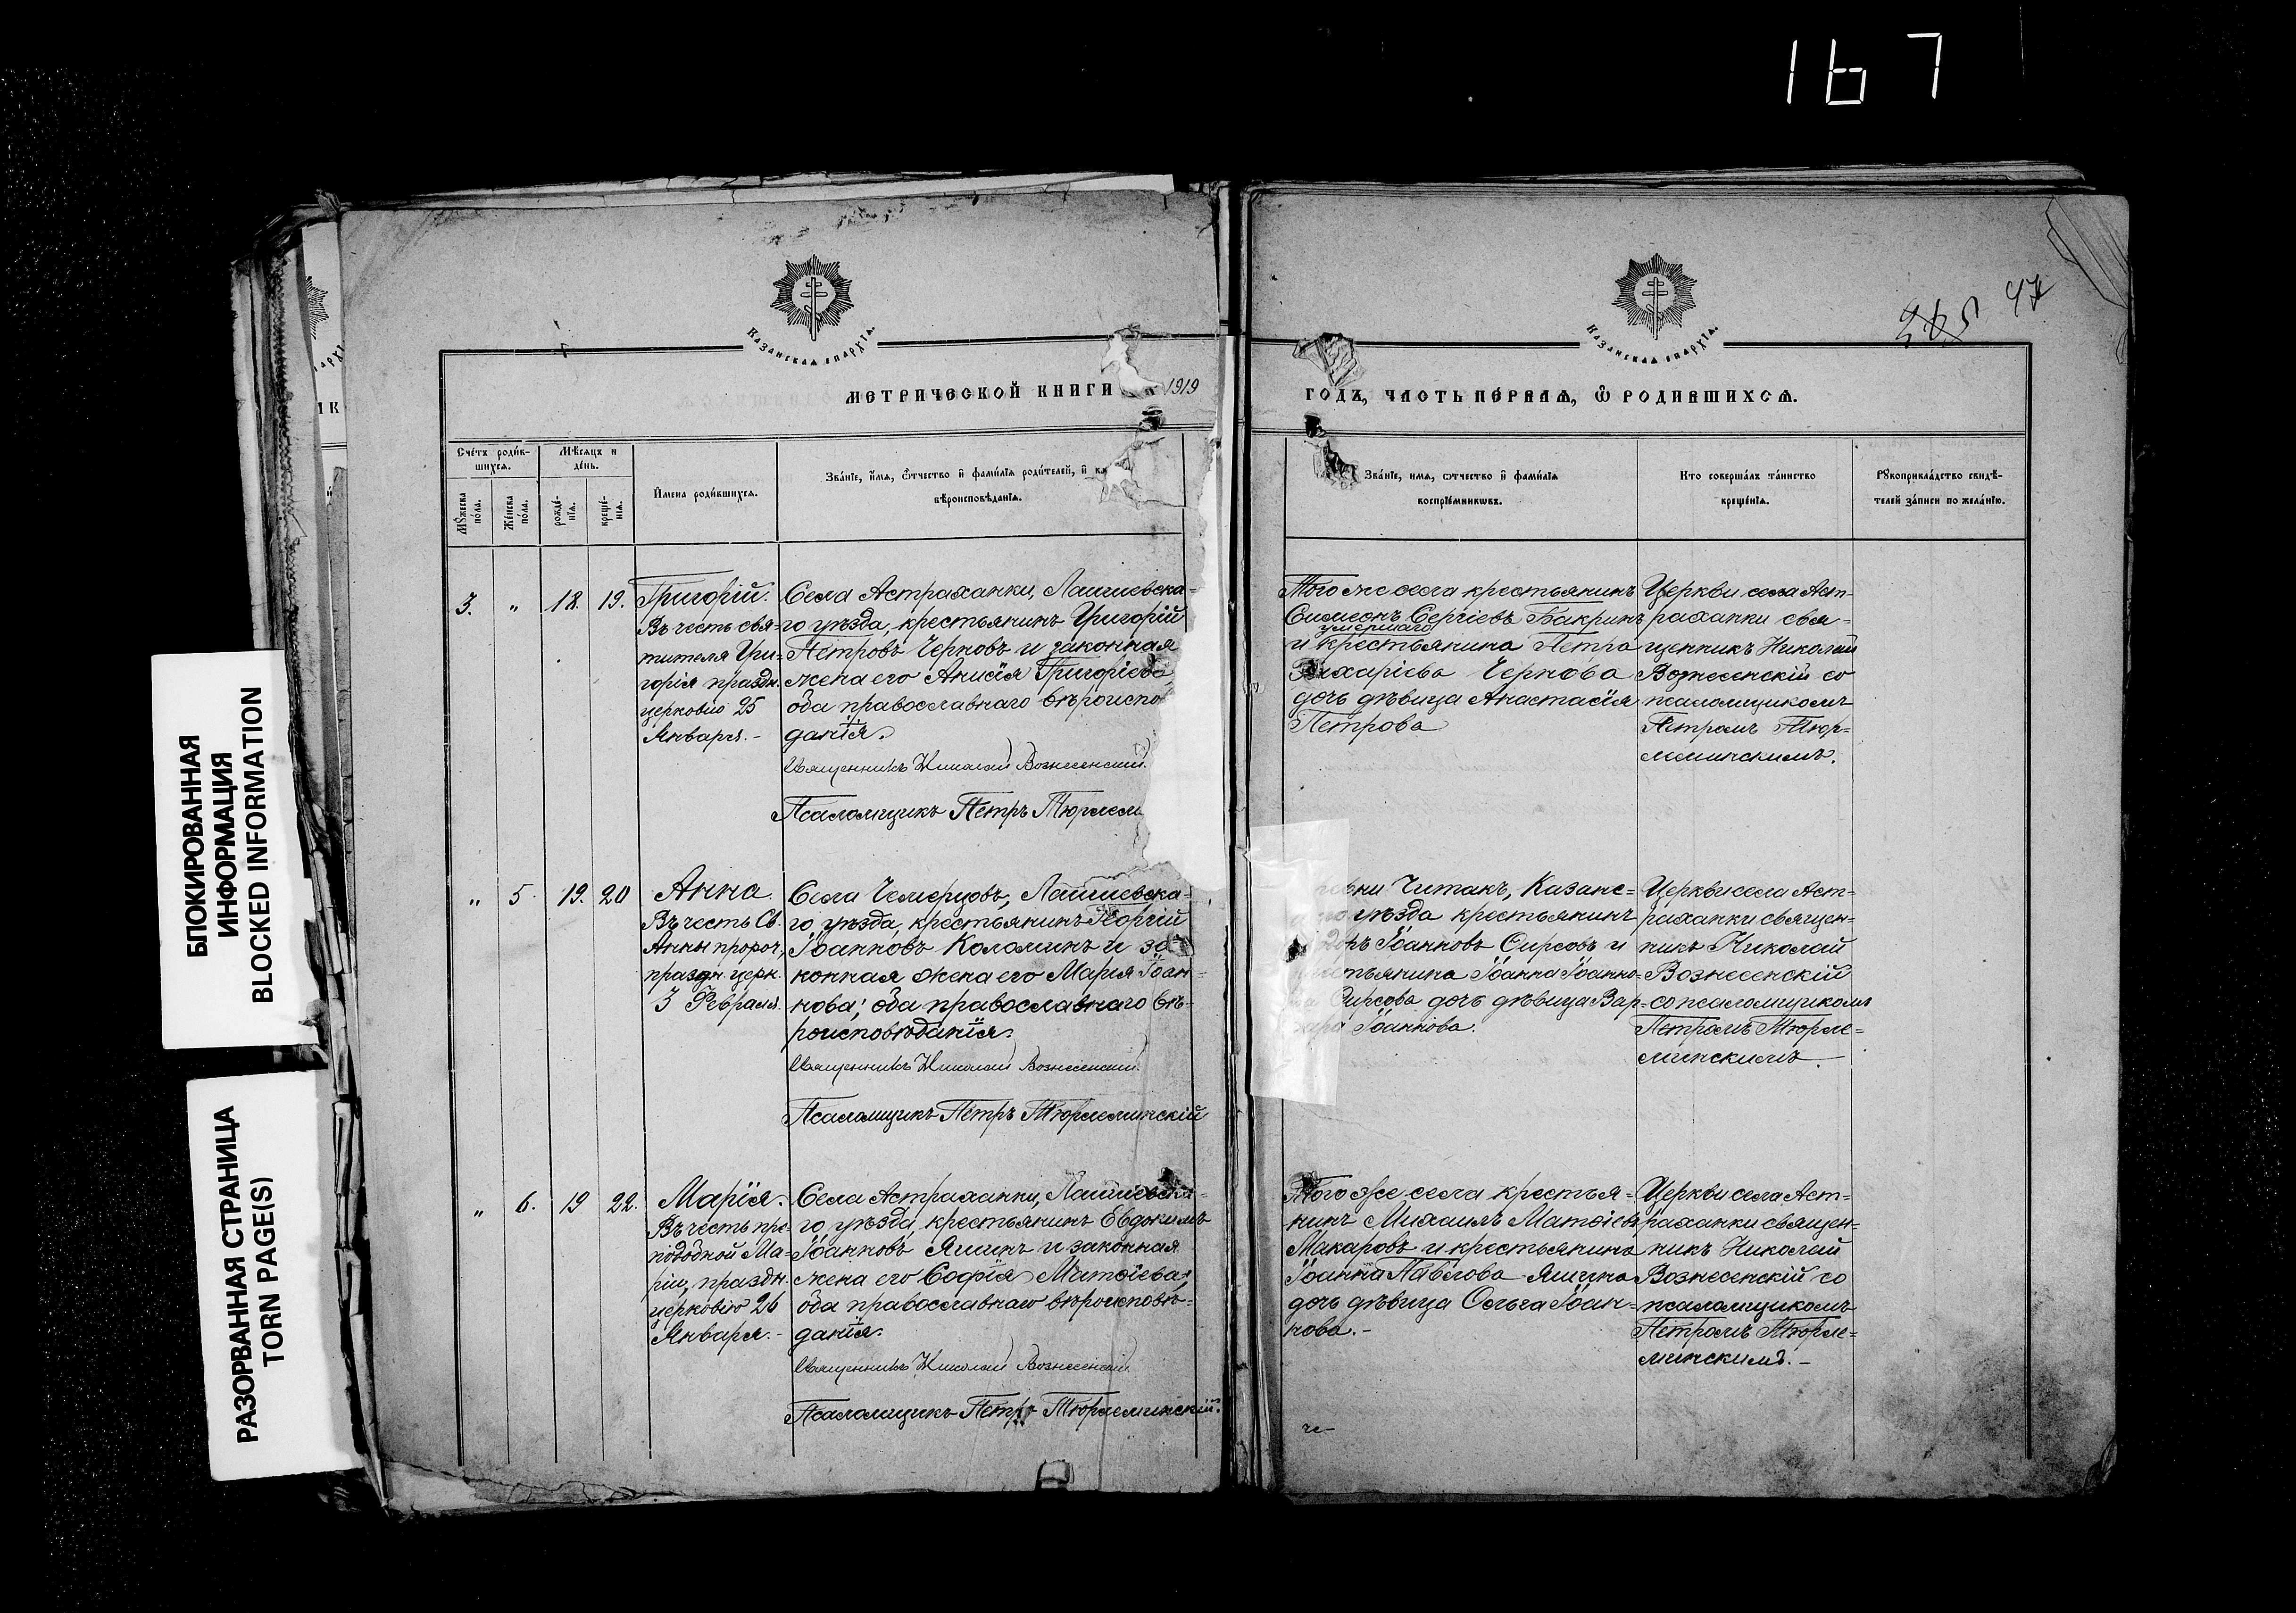 167
БЛОКИРОВАННАЯ
ИНФОРМАЦИЯ
BLOCKED INFORMATION
РАЗОРВАННАЯ СТРАНИЦА
TORN PAGE(S)
Казанская епархія.
МЕТРИЧЕСКОЙ КНИГИ 1919
Счétъ роди́в-
шихся.
Мѣ́сяцъ и
де́нь.
Мꙋ́жеска
по́ла.
Же́нска
по́ла.
рожде́-
нія.
креще́-
нія.
И҆мена роди́вшихся.
Зва́ніе, и҆́мя, ѻ҆́тчество и҆ фами́лія роди́телей, и҆
вѣроисповѣ́данія.
3. " 18. 19. Григорій.
Въ честь свя-
тителя Гри-
горія праздн.
церковію 25
Января.-
Села Астраханки, Лаишевска-
го уѣзда, крестьянинъ Григорій
Петровъ Черновъ и законная
жена его Анисія Григорьева,
оба православнаго вѣроиспо
данія.
Священникъ Николай Вознесенскій.
Псаломщикъ Петръ Тюрлем
" 5. 19. 20 Анна
Въ честь Св.
Анны пророч.,
праздн. церк.
3 Февраля.
Села Чемерцовъ, Лаишевска-
го уѣзда, крестьянинъ Георгій
Іоанновъ Коломинъ и за-
конная жена его Марія Іоан-
нова; оба православнаго вѣ-
роисповѣданія.
Священникъ Николай Вознесенскій.
Псаломщикъ Петръ Тюрлеминскій
" 6. 19 22. Марія.
Въ честь пре-
подобной Ма-
ріи, праздн.
церковію 26
Января.-
Села Астраханки, Лаишевска-
го уѣзда, крестьянинъ Евдокимъ
Іоанновъ Яшинъ и законная
жена его Софія Матѳіева;
оба православнаго вѣроисповѣ-
данія.
Священникъ Николай Вознесенскій
Псаломщикъ Петръ Тюрлеминскій.
Казанская епархія.
47
ГОДЪ, ЧАСТЬ ПЕ́РВАЯ, Ѽ РОДИВШИХСЯ.
Зва́ніе, имя, ѻтчество и҆ фами́лія
воспріе́мникѡвъ.
Кто соверша́лъ та́инство
креще́нія.
Рꙋкоприкла́дство свидѣ́-
телей за́писи по жела́нію.
Того же села крестьянинъ
Симеонъ Сергіевъ Бакринъ
умершаго
и крестьянина Петра
Захаріева Чернова
дочь дѣвица Анастасія
Петрова
Церкви села Аст-
раханки свя-
щенникъ Николай
Вознесенскій со
псаломщикомъ
Петромъ Тюр-
леминскимъ.
Читакъ, Казанс-
уѣзда крестьянинъ
Іоанновъ Сирсовъ и
Іоанна Іоанно-
Сирсова дочь дѣвица Вар-
Іоаннова.
Церкви села Аст-
раханки священ-
никъ Николай
Вознесенскій
со псаломщикомъ
Петромъ Тюрле-
минскимъ.
Того же села крестья-
нинъ Михаилъ Матѳіевъ
Макаровъ и крестьянина
Іоанна Павлова Яшина
дочь дѣвица Ольга Іоан-
нова.-
Церкви села Аст-
раханки священ-
никъ Николай
Вознесенскій со
псаломщикомъ
Петромъ Тюрле-
минскимъ.-